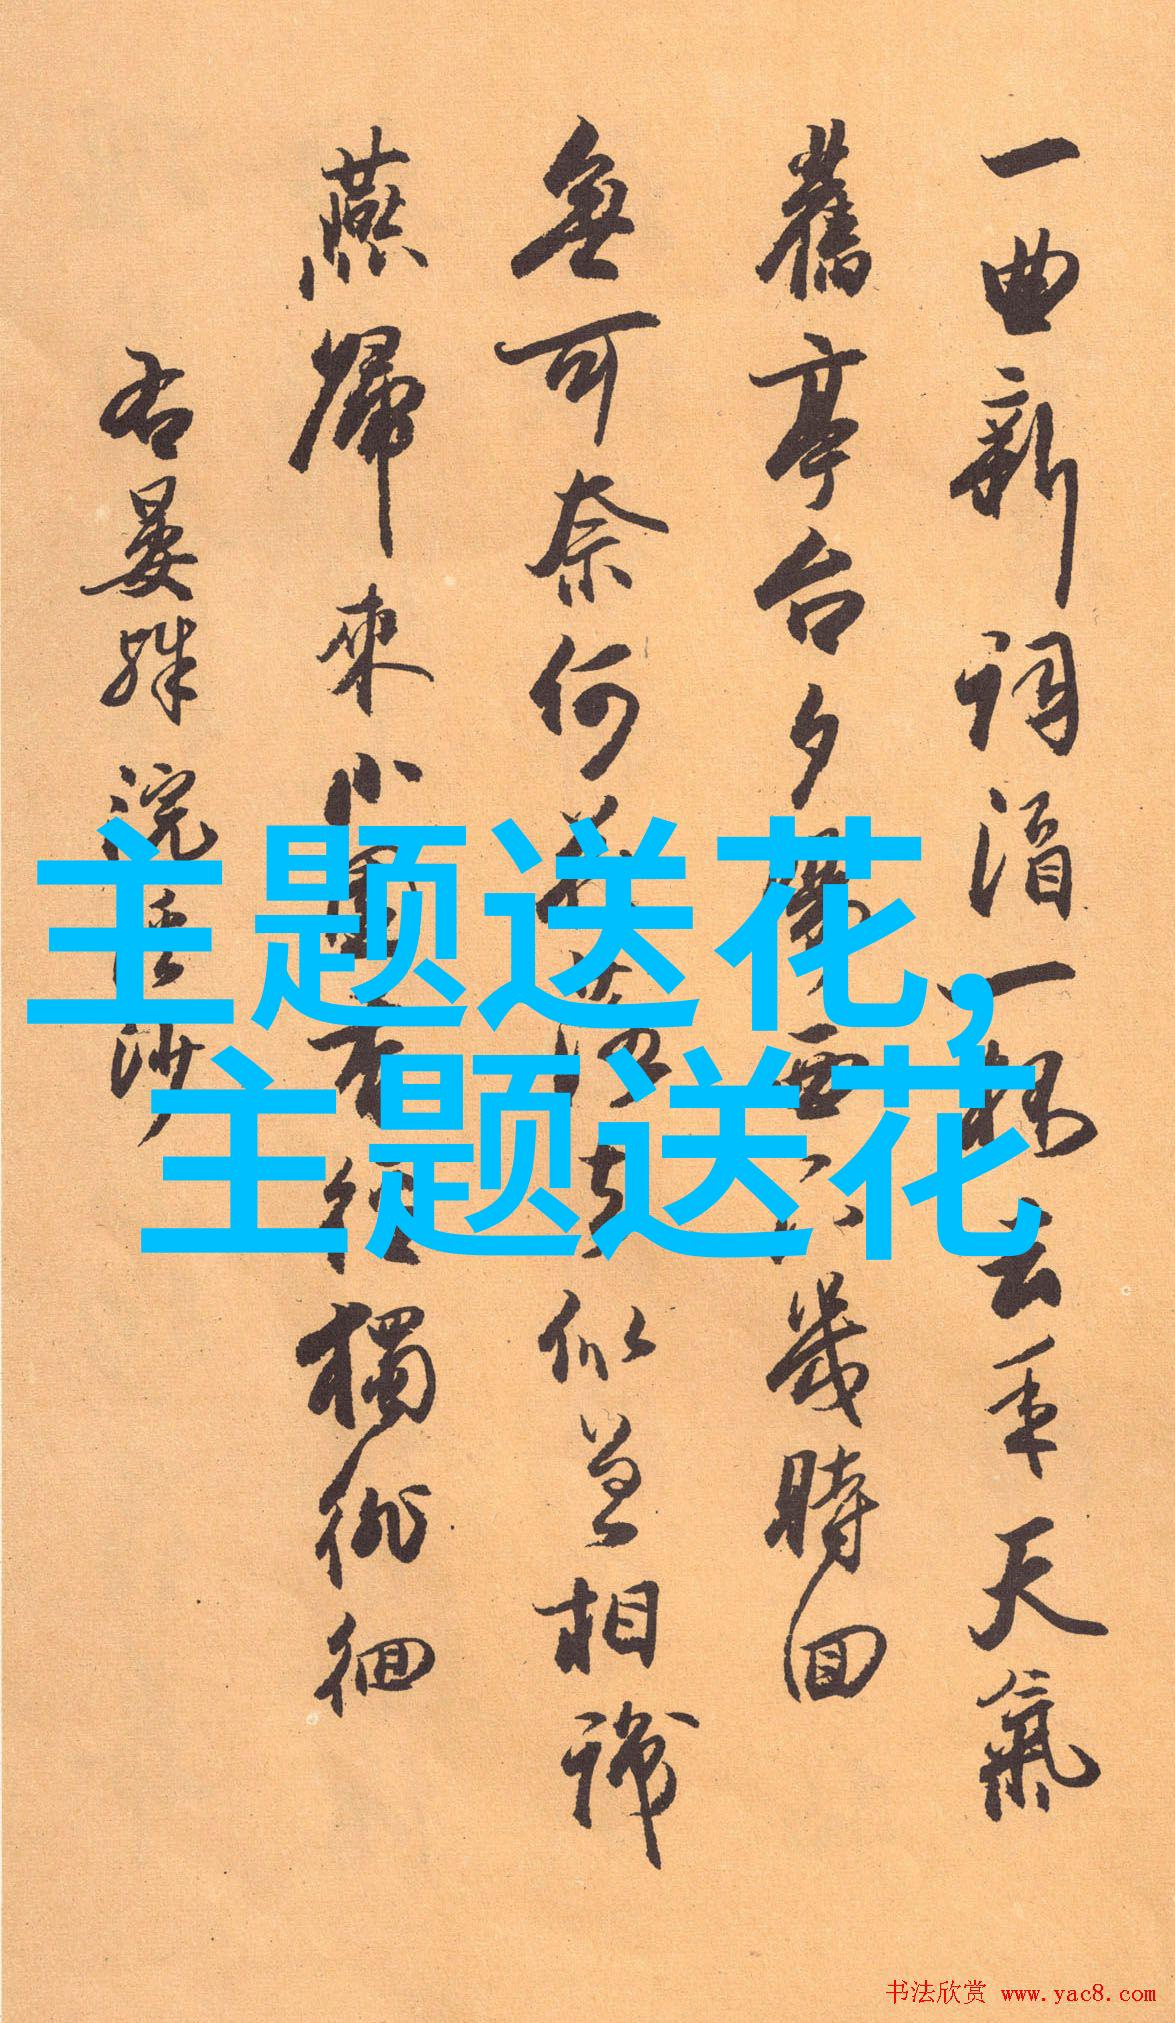 一曲新詞酒一杯去年天氣
舊亭台夕陽西下幾時回
無可奈何花落去似曾相識
燕歸來小園香徑獨徘徊
右晏殊浣溪沙
主题送花,
主题送花
书法欣赏 www.yac8.com